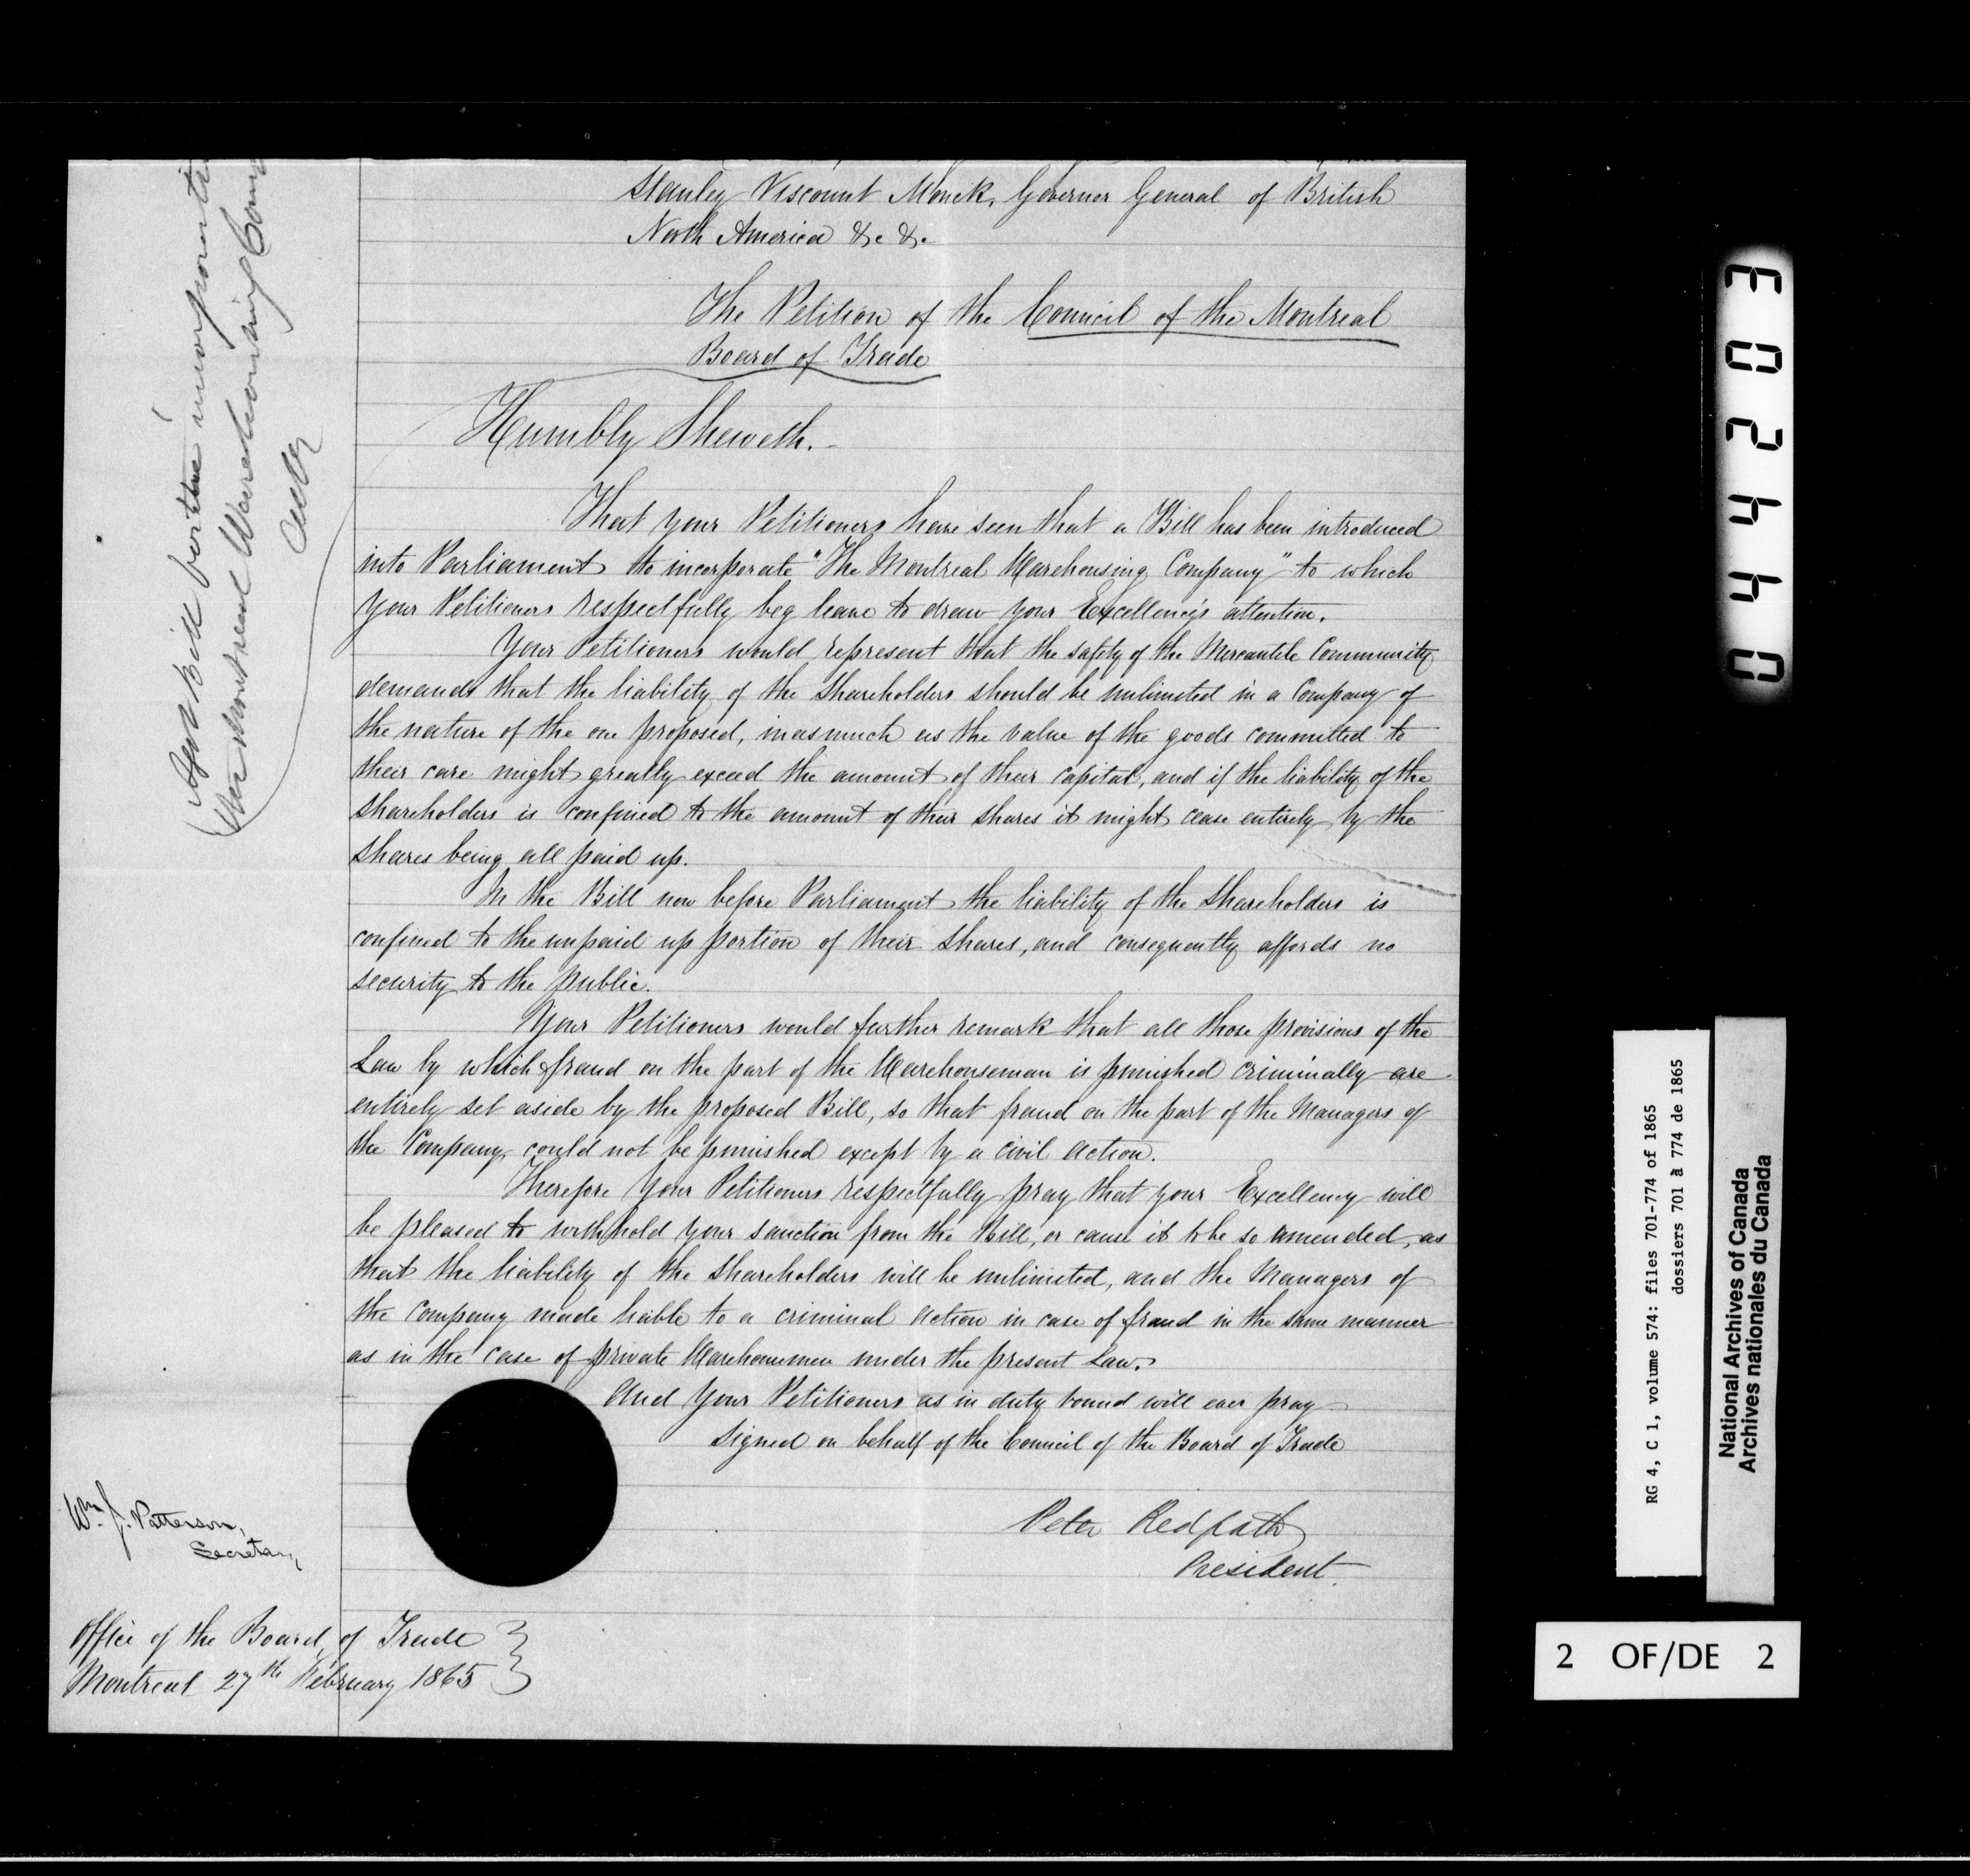 Stanley Viscount Monck, Governor General of British
North America &c &c
The Petition of the Council of the Montreal
Board of Trade
Humbly Sheweth.
That your Petitioners have seen that a Bill has been introduced
into Parliament to incorporate "The Montreal Warehousing Company" to which
your Petitioners respectfully beg leave to draw your Excellency's attention.
Your Petitioners would represent that the safety of the Mercantile Community
demands that the liability of the Shareholders should be unlimited in a Company of
the nature of the one proposed, inasmuch as the value of the goods committed to
their care might greatly exceed the amount of their capital, and if the liability of the
Shareholders is confined to the amount of their shares it might cease entirely by the
shares being all paid up.
In the Bill now before Parliament the liability of the Shareholders is
confined to the unpaid up portion of their shares, and consequently affords no
security to the public.
Your Petitioners would further remark that all those provisions of the
Law by which fraud on the part of the Warehouseman is punished criminally are
entirely set aside by the proposed Bill, so that fraud on the part of the Managers of
the Company could not be punished except by a civil action.
Therefore Your Petitioners respectfully pray that your Excellency will
be pleased to withhold your sanction from the Bill, or cause it to be so amended, as
that the liability of the Shareholders will be unlimited, and the Managers of
the Company made liable to a criminal action in case of fraud in the same manner
as in the case of private Warehousemen under the present Law.
And Your Petitioners as in duty bound will ever pray
Signed on behalf of the Council of the Board of Trade
Peter Redpath
President.
Wm. J. Patterson,
Secretary
Office of the Board of Trade
Montreal 27th February 1865
Bill for the incorporation
the Montreal Warehousing Comp
034420
RG 4, C 1, volume 574: files 701-774 of 1865
dossiers 701 à 774 de 1865
National Archives of Canada
Archives nationales du Canada
2 OF/DE 2